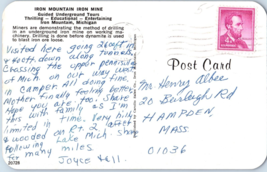 IRON MOUNTAIN IRON MINE
Guided Underground Tours
Thrilling — Educational — Entertaining
Iron Mountain, Michigan
Miners are demonstrating the method of drilling
in an underground iron mine on working
machinery. Done before dynamite is used
to blast iron ore loose.
Visited here going 2600 ft in
400 ft down along
Crossing the upper peninsula
of Mich on our way west
in camper. All doing fine.
Mother finally feeling better.
Hope you are too. Share
this with family as I'm
limited in time. Very hilly
& wooded on Rt. 2 after
following Lake Mich shore
for many miles.
Joyce
20728
Post Card
Mr Henry Albee
20 Burleigh Rd
HAMPDEN,
MASS.
01036